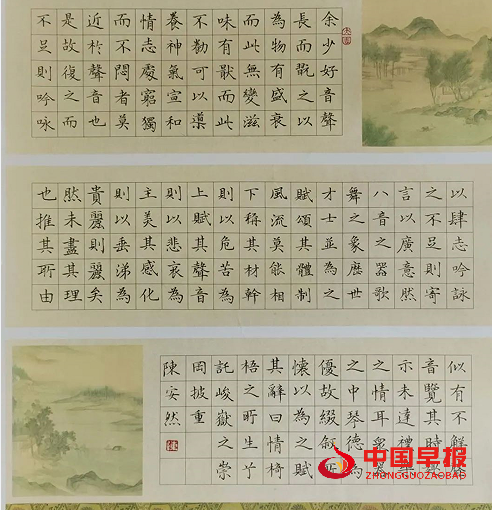 余少好音聲
長而翫之以
為物有盛衰
而此無變滋
味有猒而此
不勌可以導
養神氣宣和
情志處窮獨
而不悶者莫
近於聲音也
是故復之而
不足則吟咏
以肆志吟詠
之不足則寄
言以廣意然
八音之器歌
舞之象歷世
才士並為之
賦頌其體制
風流莫能相
下稱其材幹
則以危苦為
上賦其聲音
則以悲哀為
主美其感化
則以垂涕為
貴麗則麗矣
然未盡其理
也推其所由
似有不解
音覽其時
示未達禮
之情耳眾
之中琴德為
優故綴敘所
懷以為之賦
其辭曰情椅
梧之所生兮
託峻嶽之崇
岡披重
陳安然
中国早报
ZHONGGUOZAOBAO